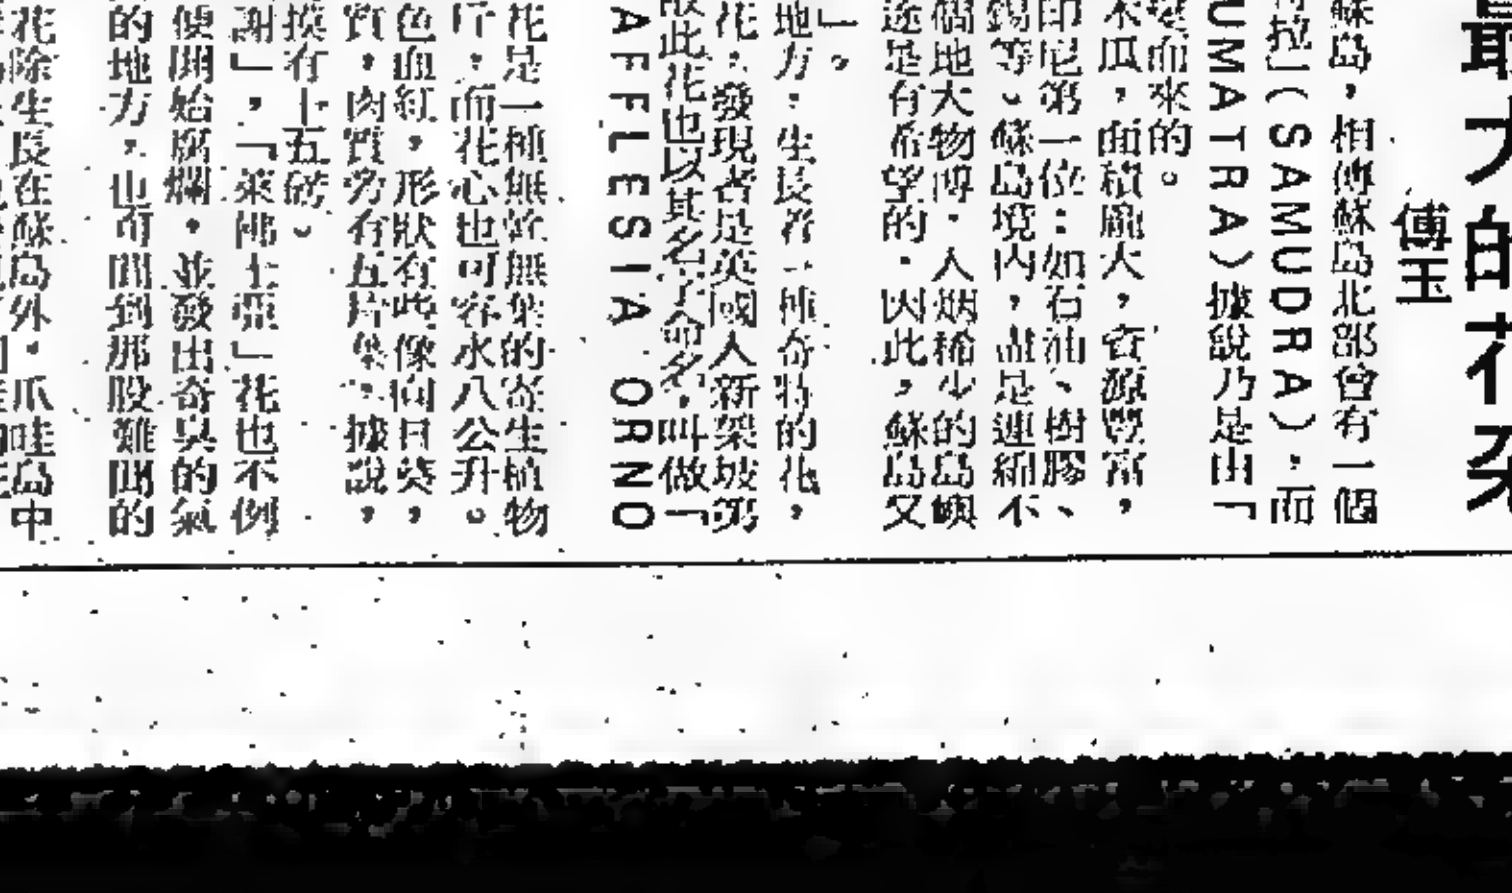 最大的花朵
傅玉
蘇島，相傳蘇島北部曾有一個
拉」(SAMUDRA)，而
UMATRA)據說乃是由「
而來的。
木瓜，面積龐大，資源豐富，
印尼第一位：如石油、樹膠、
錫等。蘇島境內，盡是連綿不
個地大物博，人烟稀少的島嶼
途是有希望的，因此，蘇島又
」。
地方，生長者一種奇特的花，
花，發現者是英國人新架坡
故此花也以其名字命名，叫做「
AFFLESIA ORNO
花是一種無莖無葉的寄生植物
斤，而花心也可容水八公升。
色血紅，形狀有些像向日葵，
質，肉質旁有五片葉，據說，
摸有十五磅。
謝」，「萊佛士亞」花也不例
便開始腐爛，並發出奇臭的氣
的地方，也可聞到那股難聞的
花除生長在蘇島外，爪哇島中